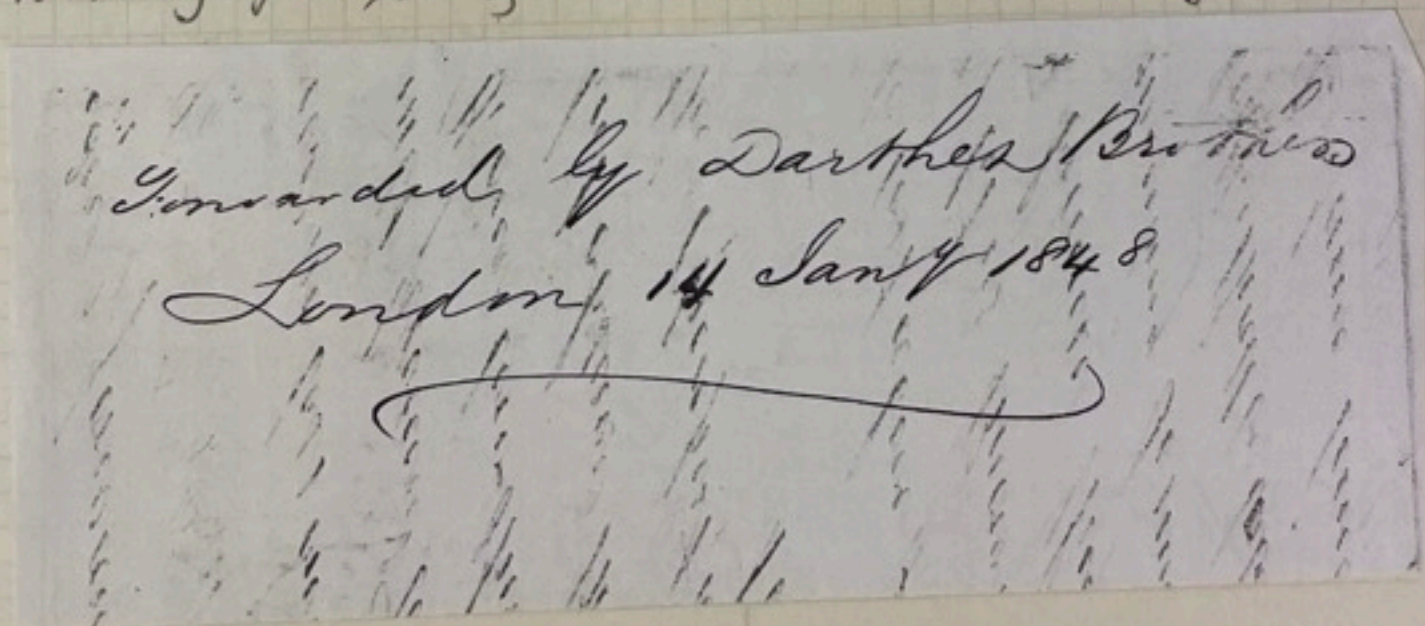 Forwarded by Darthez Brothers
London 14 Jany 1848